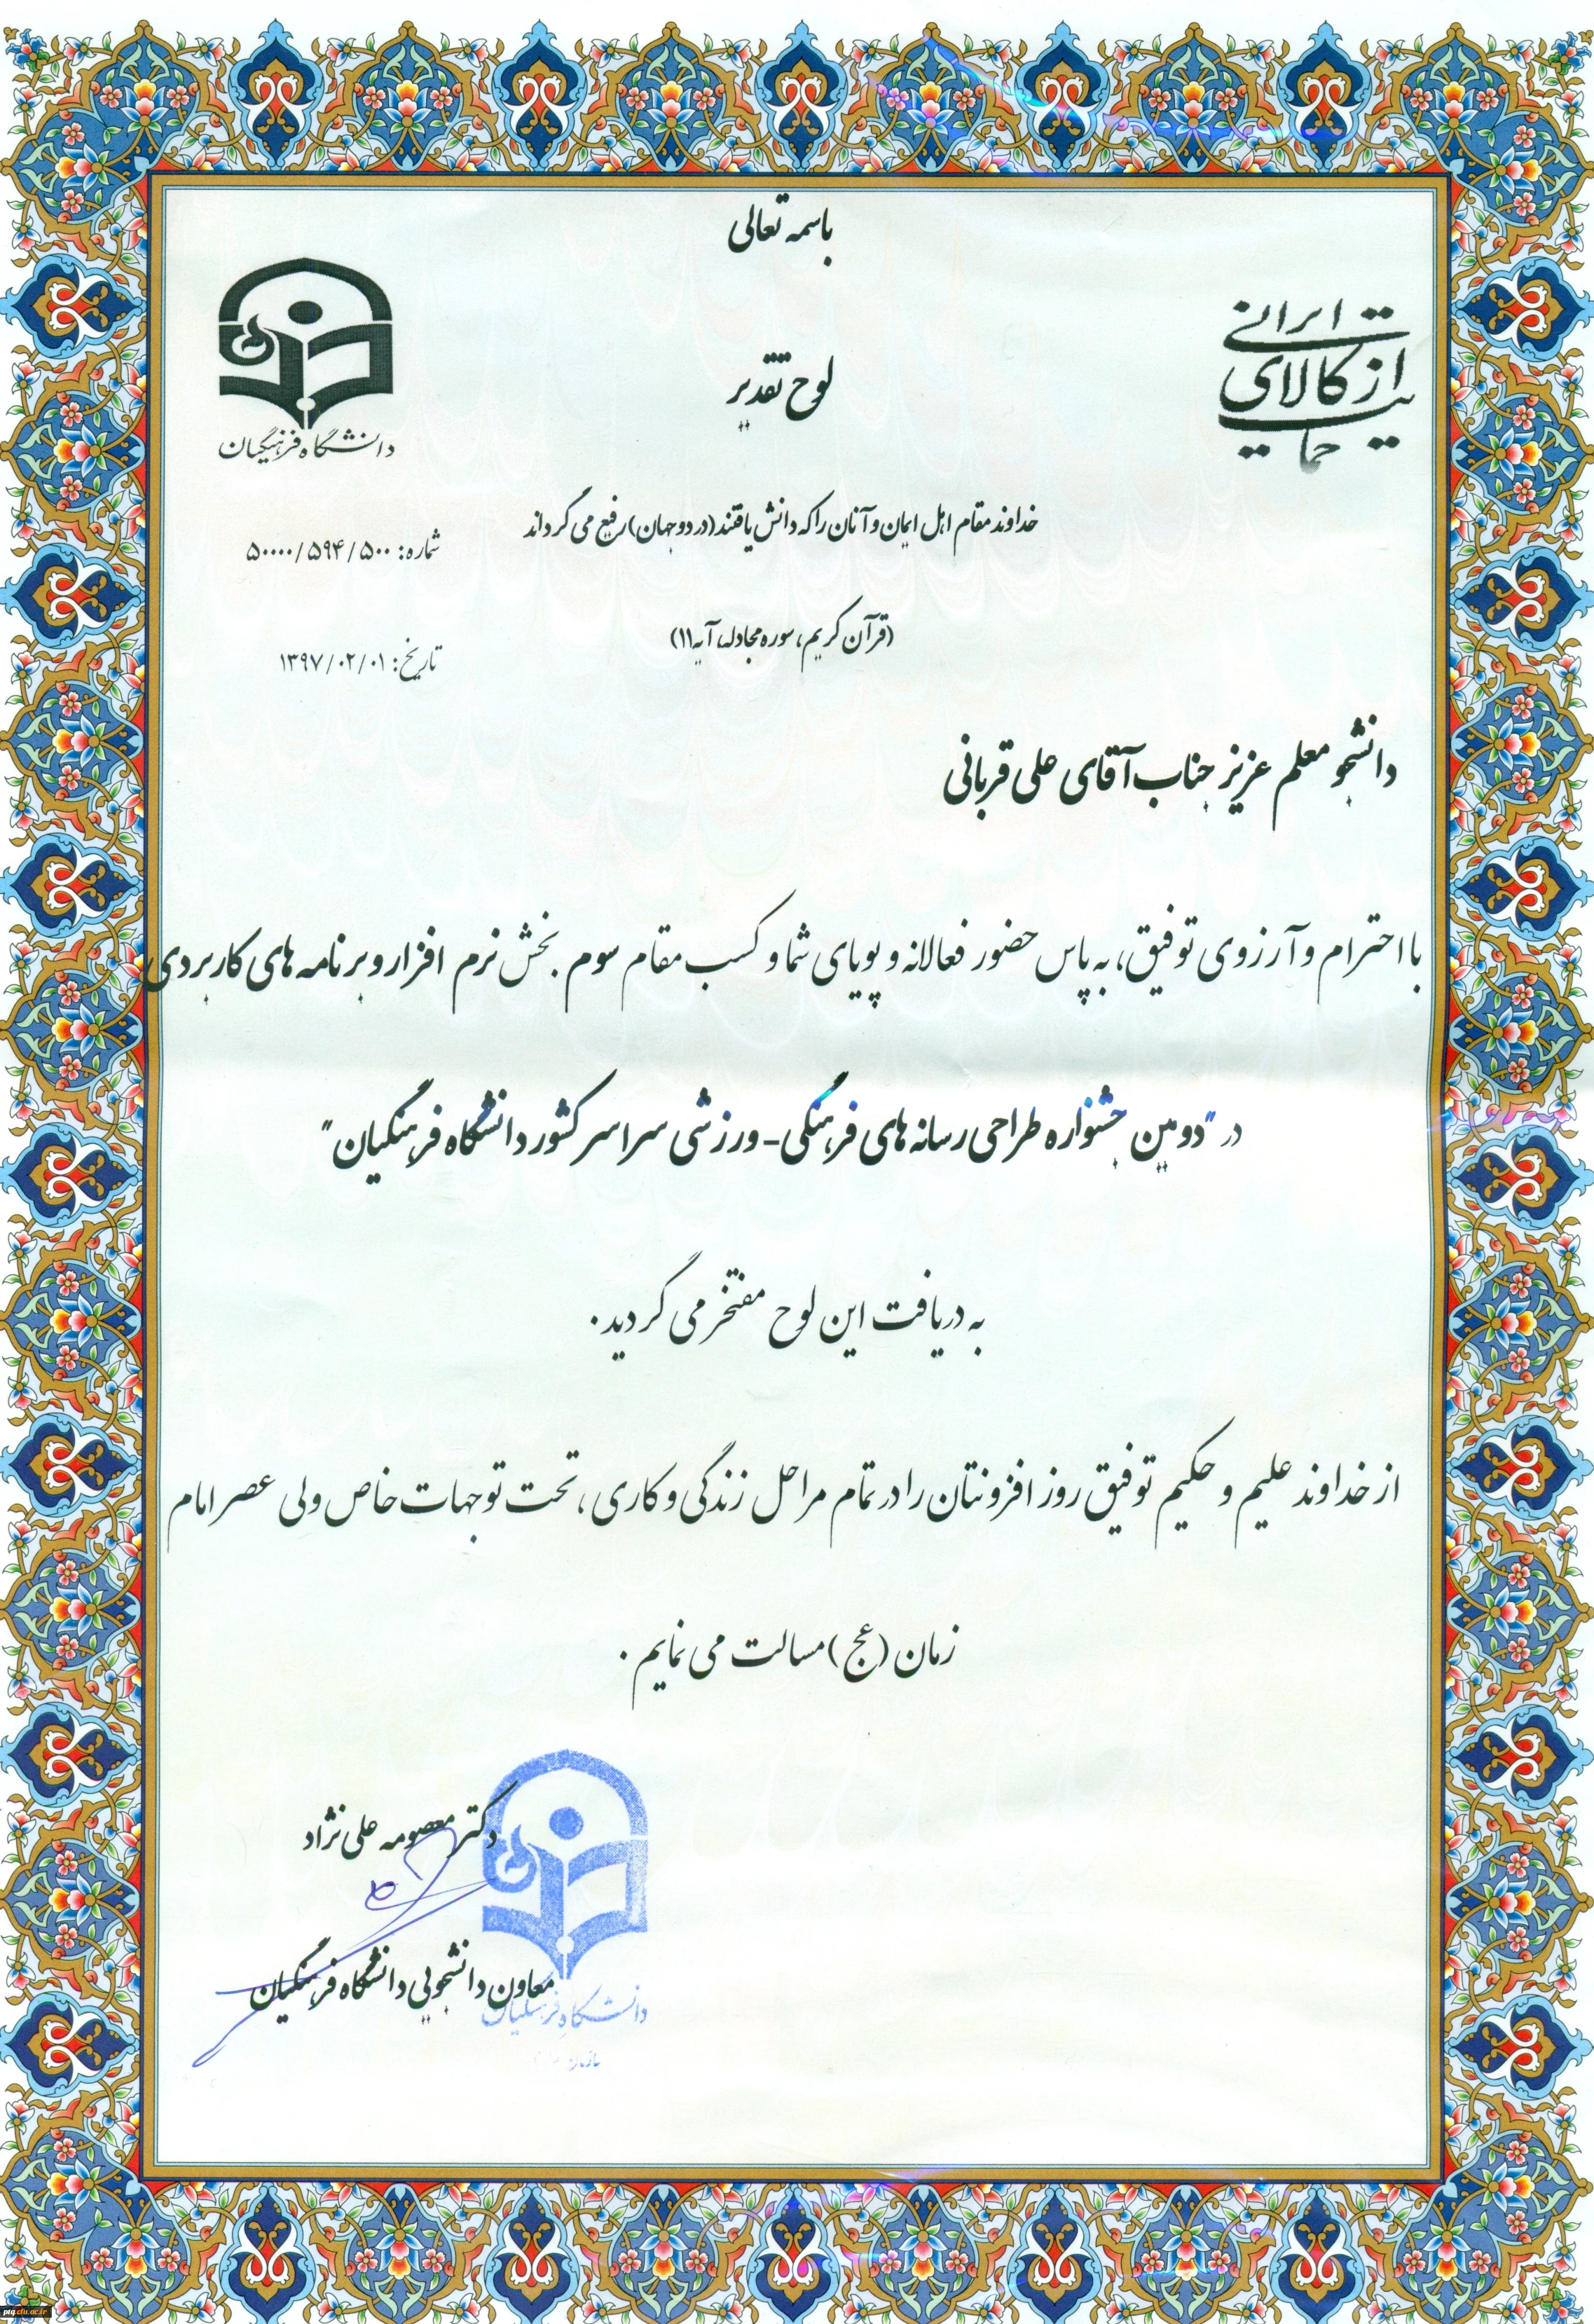 باسمه تعالی
حمایت از کالای ایرانی
دانشگاه فرهنگیان
لوح تقدیر
خداوند مقام اهل ایمان و آنان را که دانش یافتند (در دو جهان) رفیع می گرداند
شماره: ۵۰۰۰۰/۵۹۴/۵۰۰
(قرآن کریم، سوره مجادله، آیه ۱۱)
تاریخ: ۱۳۹۷/۰۲/۰۱
دانشجو معلم عزیز جناب آقای علی قربانی
با احترام و آرزوی توفیق، به پاس حضور فعالانه و پویای شما و کسب مقام سوم بخش نرم افزار و برنامه های کاربردی
در "دومین جشنواره طراحی رسانه های فرهنگی- ورزشی سراسر کشور دانشگاه فرهنگیان"
به دریافت این لوح مفتخر می گردید.
از خداوند علیم و حکیم توفیق روز افزونتان را در تمام مراحل زندگی و کاری، تحت توجهات خاص ولی عصر امام
زمان (عج) مسالت می نمایم.
دکتر معصومه علی نژاد
معاون دانشجویی دانشگاه فرهنگیان
دانشگاه فرهنگیان
سازمان
ptq.cfu.ac.ir